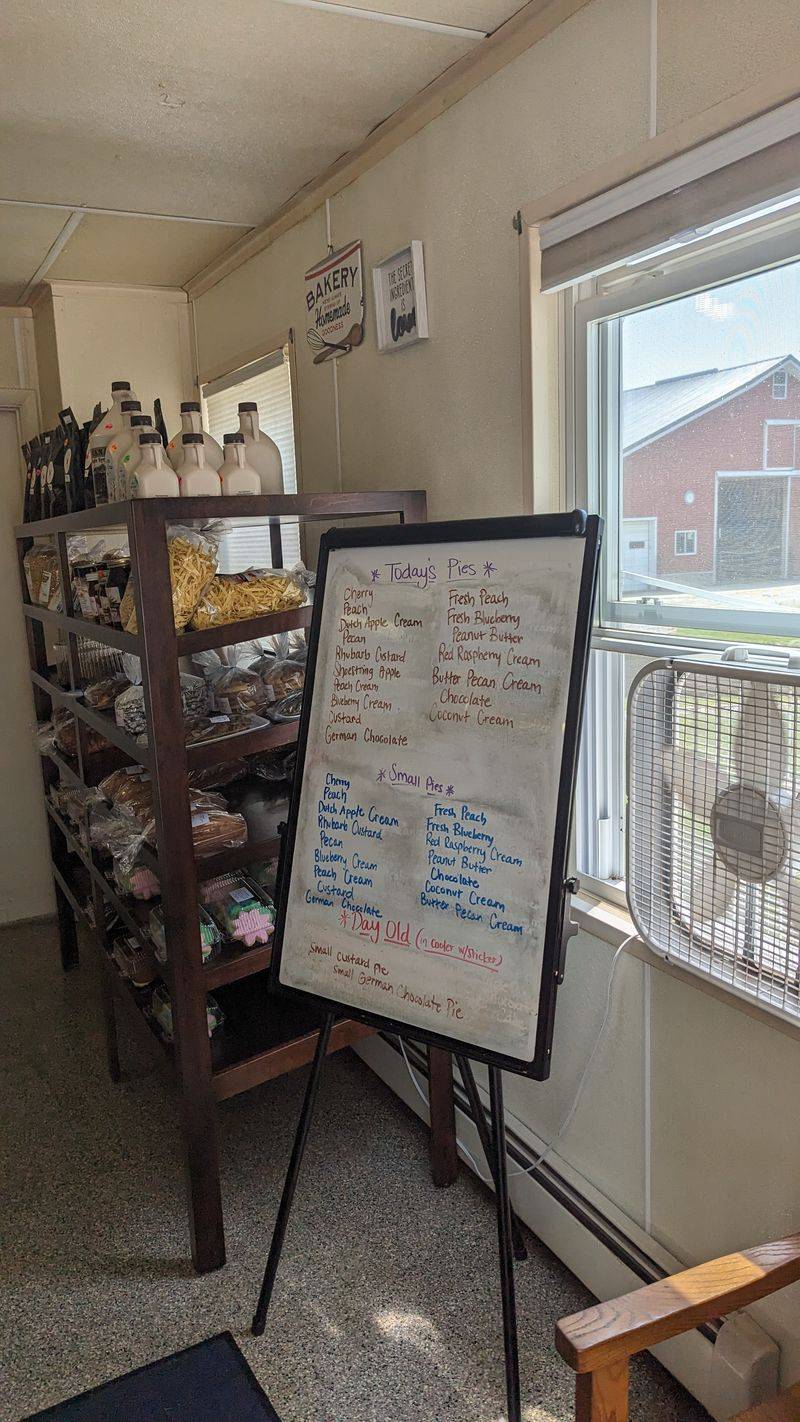 BAKERY
Homemade
GOODNESS
THE SECRET
INGREDIENT
IS
love
* Today's Pies *
Cherry
Peach
Dutch Apple Cream
Pecan
Rhubarb Custard
Shoestring Apple
Peach Cream
Blueberry Cream
Custard
German Chocolate
Fresh Peach
Fresh Blueberry
Peanut Butter
Red Raspberry Cream
Butter Pecan Cream
Chocolate
Coconut Cream
* Small Pies *
Cherry
Peach
Dutch Apple Cream
Rhubarb Custard
Pecan
Blueberry Cream
Peach Cream
Custard
German Chocolate
Fresh Peach
Fresh Blueberry
Red Raspberry Cream
Peanut Butter
Chocolate
Coconut Cream
Butter Pecan Cream
* Day Old (in cooler w/sticker)
Small Custard Pie
Small German Chocolate Pie